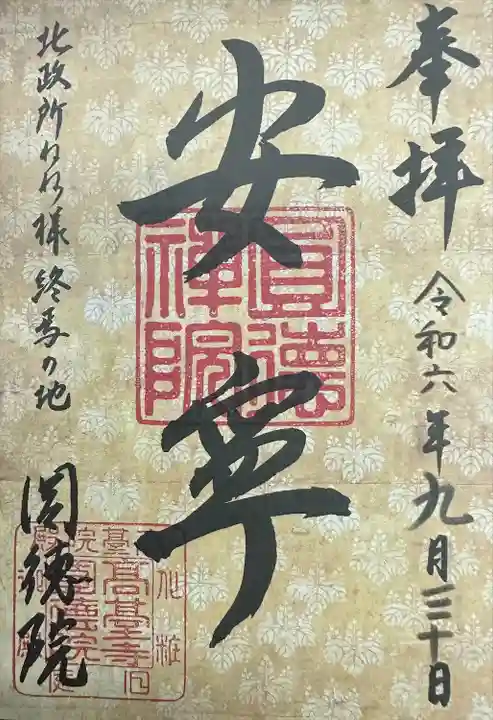 奉拝
令和六年九月三十日
安寧
圓徳禅院
北政所ねね様終焉の地
圓徳院
高臺寺
化粧